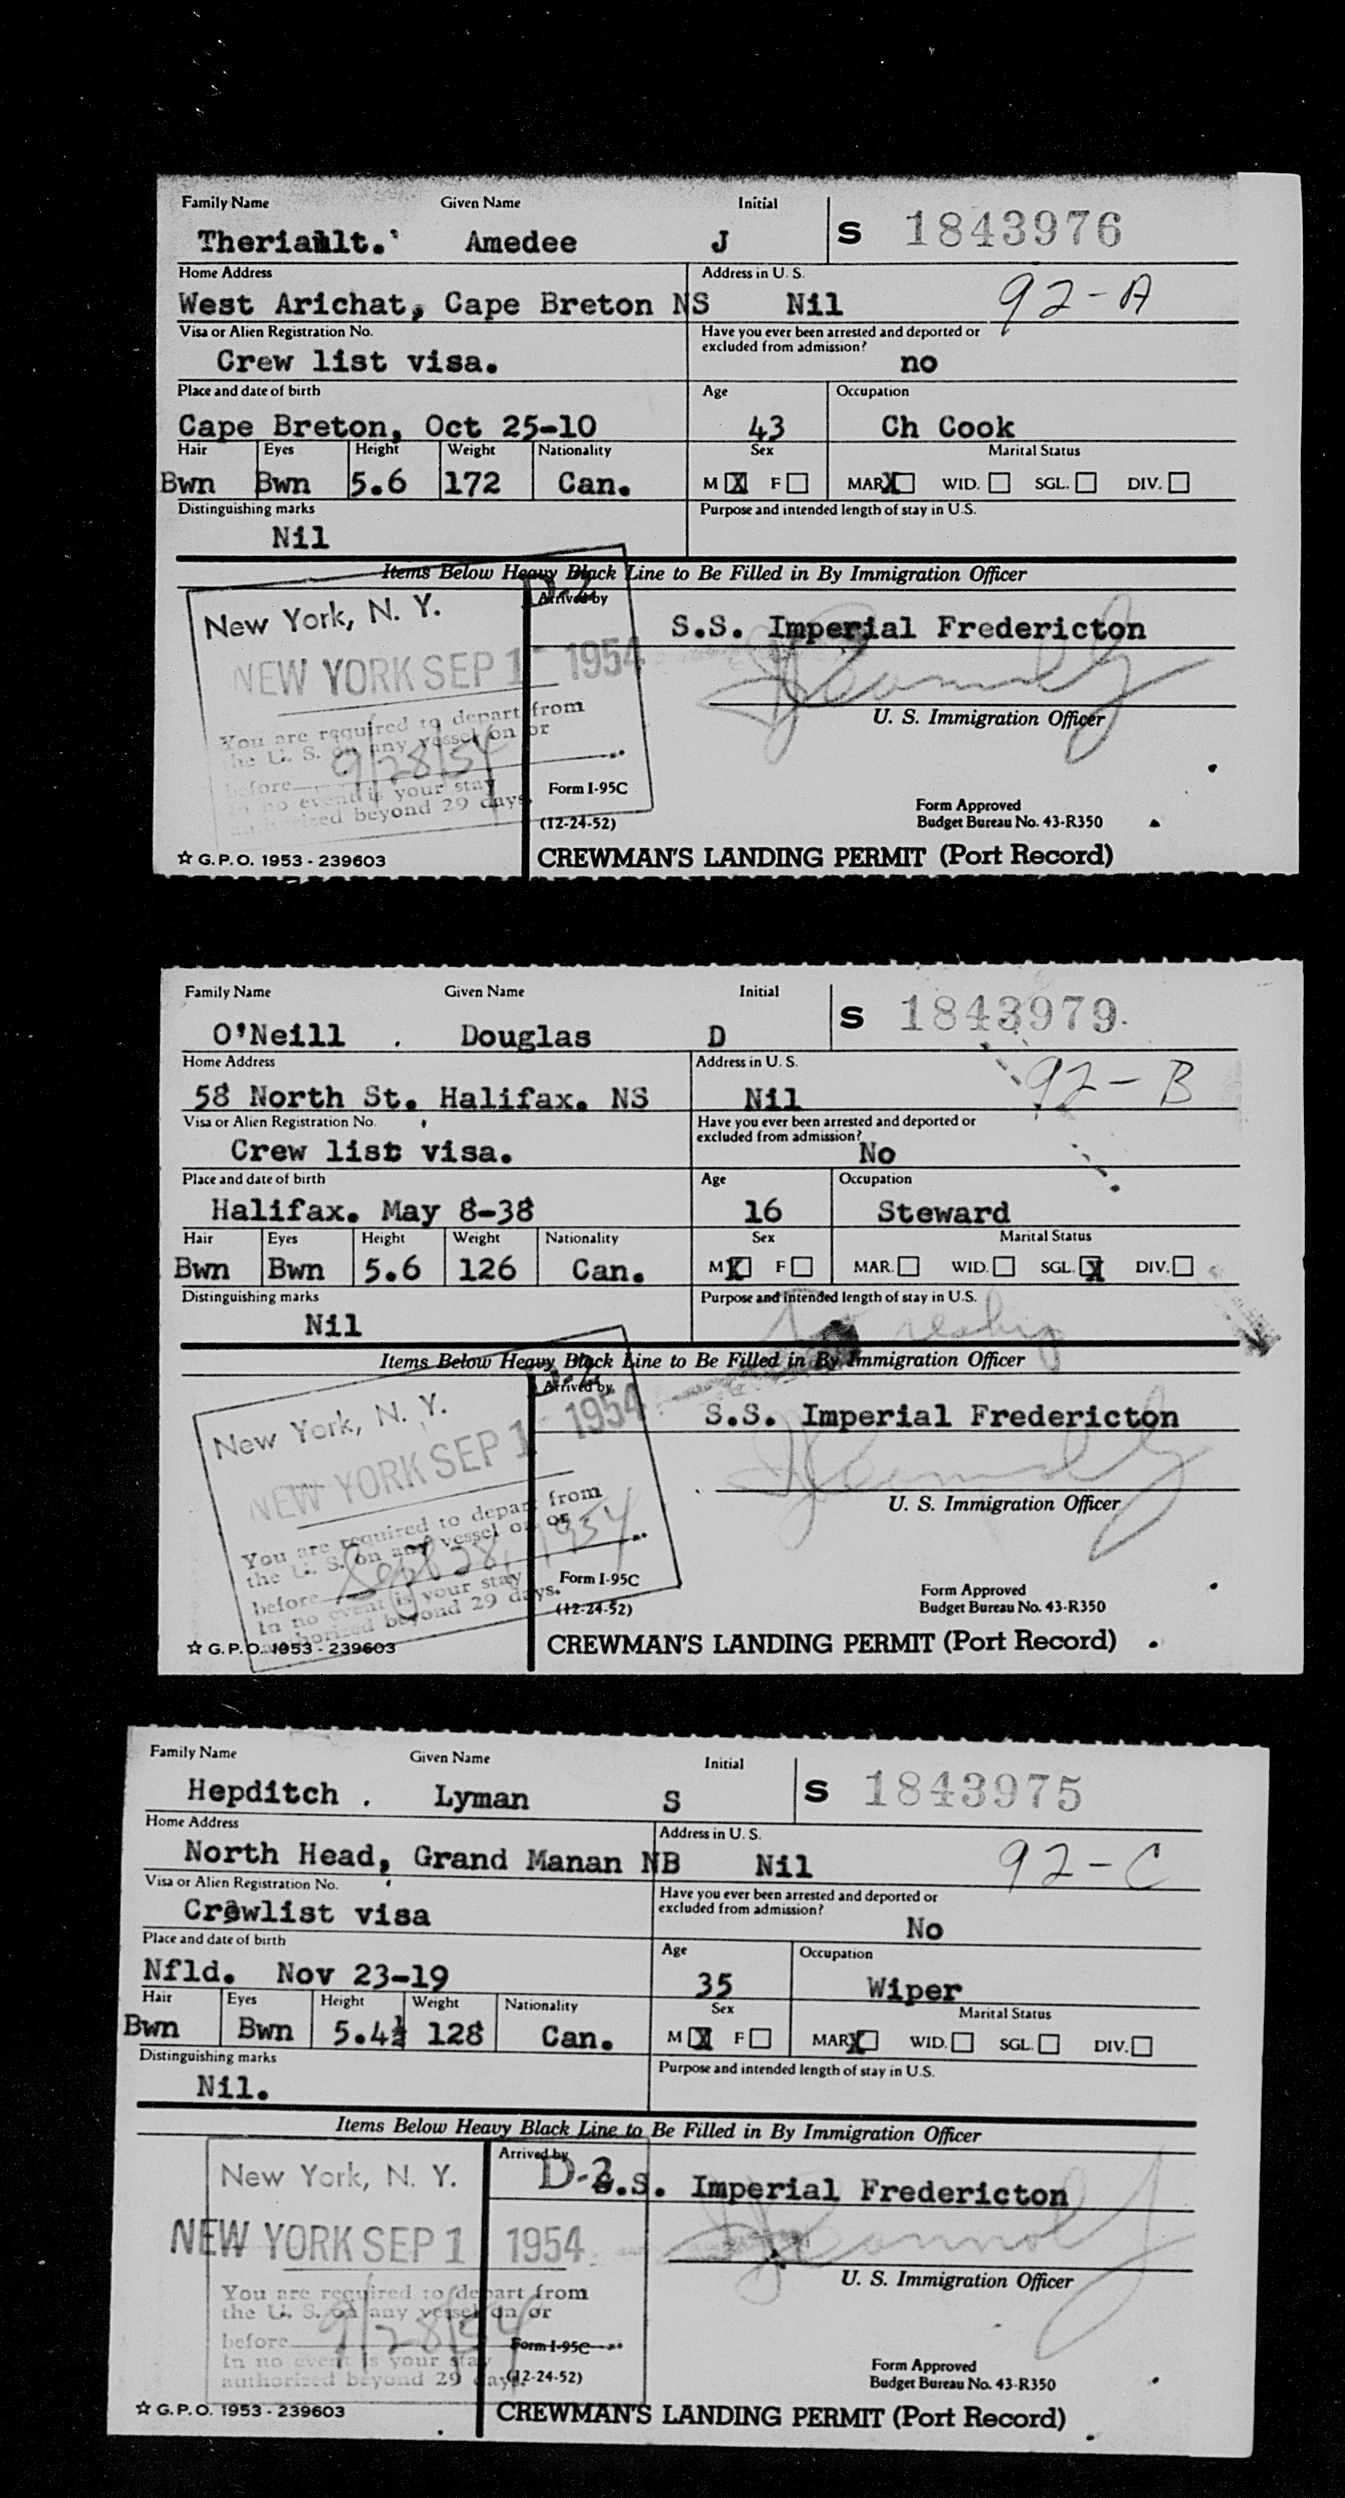 Family Name Given Name Initial
Theriault. Amedee J S 1843976
Home Address Address in U. S.
West Arichat, Cape Breton NS Nil 92-A
Visa or Alien Registration No. Have you ever been arrested and deported or
excluded from admission?
Crew list visa. no
Place and date of birth Age Occupation
Cape Breton, Oct 25-10 43 Ch Cook
Hair Eyes Height Weight Nationality Sex Marital Status
Bwn Bwn 5.6 172 Can. M X F MAR X WID. SGL. DIV.
Distinguishing marks Purpose and intended length of stay in U.S.
Nil
Items Below Heavy Black Line to Be Filled in By Immigration Officer
New York, N. Y. Arrived by
S.S. Imperial Fredericton
NEW YORK SEP 1 - 1954
You are required to depart from U. S. Immigration Officer
the U. S. on any vessel on or
before 9/28/54
in no event is your stay Form I-95C
authorized beyond 29 days. (12-24-52)
Form Approved
Budget Bureau No. 43-R350
☆ G.P.O. 1953-239603 CREWMAN'S LANDING PERMIT (Port Record)
Family Name Given Name Initial
O'Neill . Douglas D S 1843979
Home Address Address in U. S.
58 North St. Halifax. NS Nil 92-B
Visa or Alien Registration No. Have you ever been arrested and deported or
excluded from admission?
Crew list visa. No
Place and date of birth Age Occupation
Halifax. May 8-38 16 Steward
Hair Eyes Height Weight Nationality Sex Marital Status
Bwn Bwn 5.6 126 Can. M X F MAR. WID. SGL. X DIV.
Distinguishing marks Purpose and intended length of stay in U.S.
Nil
Items Below Heavy Black Line to Be Filled in By Immigration Officer
New York, N. Y. Arrived by
S.S. Imperial Fredericton
NEW YORK SEP 1 - 1954
You are required to depart from U. S. Immigration Officer
the U. S. on any vessel on or
before Sept 28, 1954
In no event is your stay Form I-95C
authorized beyond 29 days. (12-24-52)
Form Approved
Budget Bureau No. 43-R350
☆ G.P.O. 1953-239603 CREWMAN'S LANDING PERMIT (Port Record)
Family Name Given Name Initial
Hepditch . Lyman S S 1843975
Home Address Address in U. S.
North Head, Grand Manan NB Nil 92-C
Visa or Alien Registration No. Have you ever been arrested and deported or
excluded from admission?
Crewlist visa No
Place and date of birth Age Occupation
Nfld. Nov 23-19 35 Wiper
Hair Eyes Height Weight Nationality Sex Marital Status
Bwn Bwn 5.4½ 128 Can. M X F MAR X WID. SGL. DIV.
Distinguishing marks Purpose and intended length of stay in U.S.
Nil.
Items Below Heavy Black Line to Be Filled in By Immigration Officer
New York, N. Y. Arrived by D-2
S.S. Imperial Fredericton
NEW YORK SEP 1 1954
You are required to depart from U. S. Immigration Officer
the U. S. on any vessel on or
before 9/28/54 Form I-95C
In no event is your stay
authorized beyond 29 days. (12-24-52)
Form Approved
Budget Bureau No. 43-R350
☆ G.P.O. 1953-239603 CREWMAN'S LANDING PERMIT (Port Record)